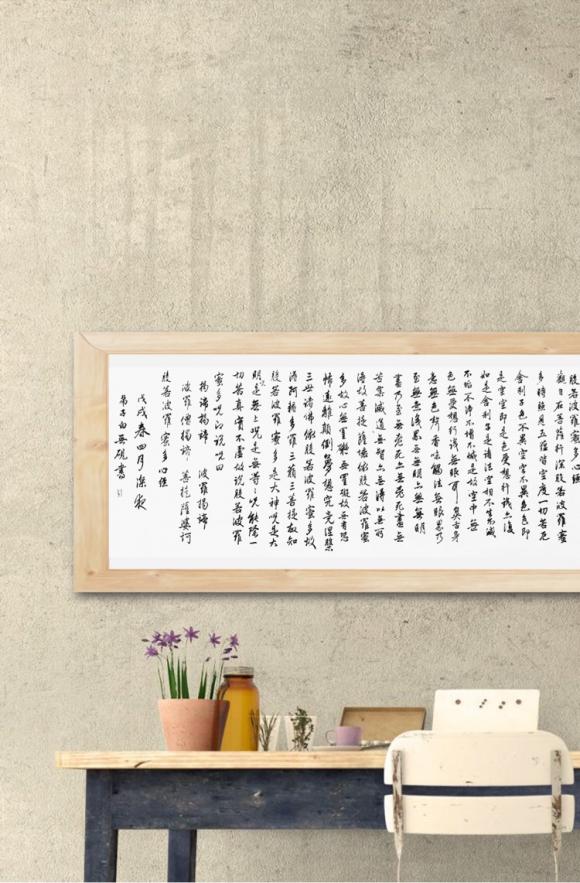 般若波羅蜜多心經
觀自在菩薩行深般若波羅蜜
多時照見五蘊皆空度一切苦厄
舍利子色不異空空不異色色即
是空空即是色受想行識亦復
如是舍利子是諸法空相不生不滅
不垢不淨不增不減是故空中無
色無受想行識無眼耳鼻舌身
意無色聲香味觸法無眼界乃
至無意識界無無明亦無無明
盡乃至無老死亦無老死盡無
苦集滅道無智亦無得以無所
得故菩提薩埵依般若波羅蜜
多故心無罣礙無罣礙故無有恐
怖遠離顛倒夢想究竟涅槃
三世諸佛依般若波羅蜜多故
得阿耨多羅三藐三菩提故知
般若波羅蜜多是大神咒是大
明咒是無上咒是無等〻咒能除一
切苦真實不虛故說般若波羅
蜜多咒即說咒曰
揭諦揭諦 波羅揭諦
波羅僧揭諦 菩提薩婆訶
般若波羅蜜多心經
戊戌春四月深夜
弟子白無硯書